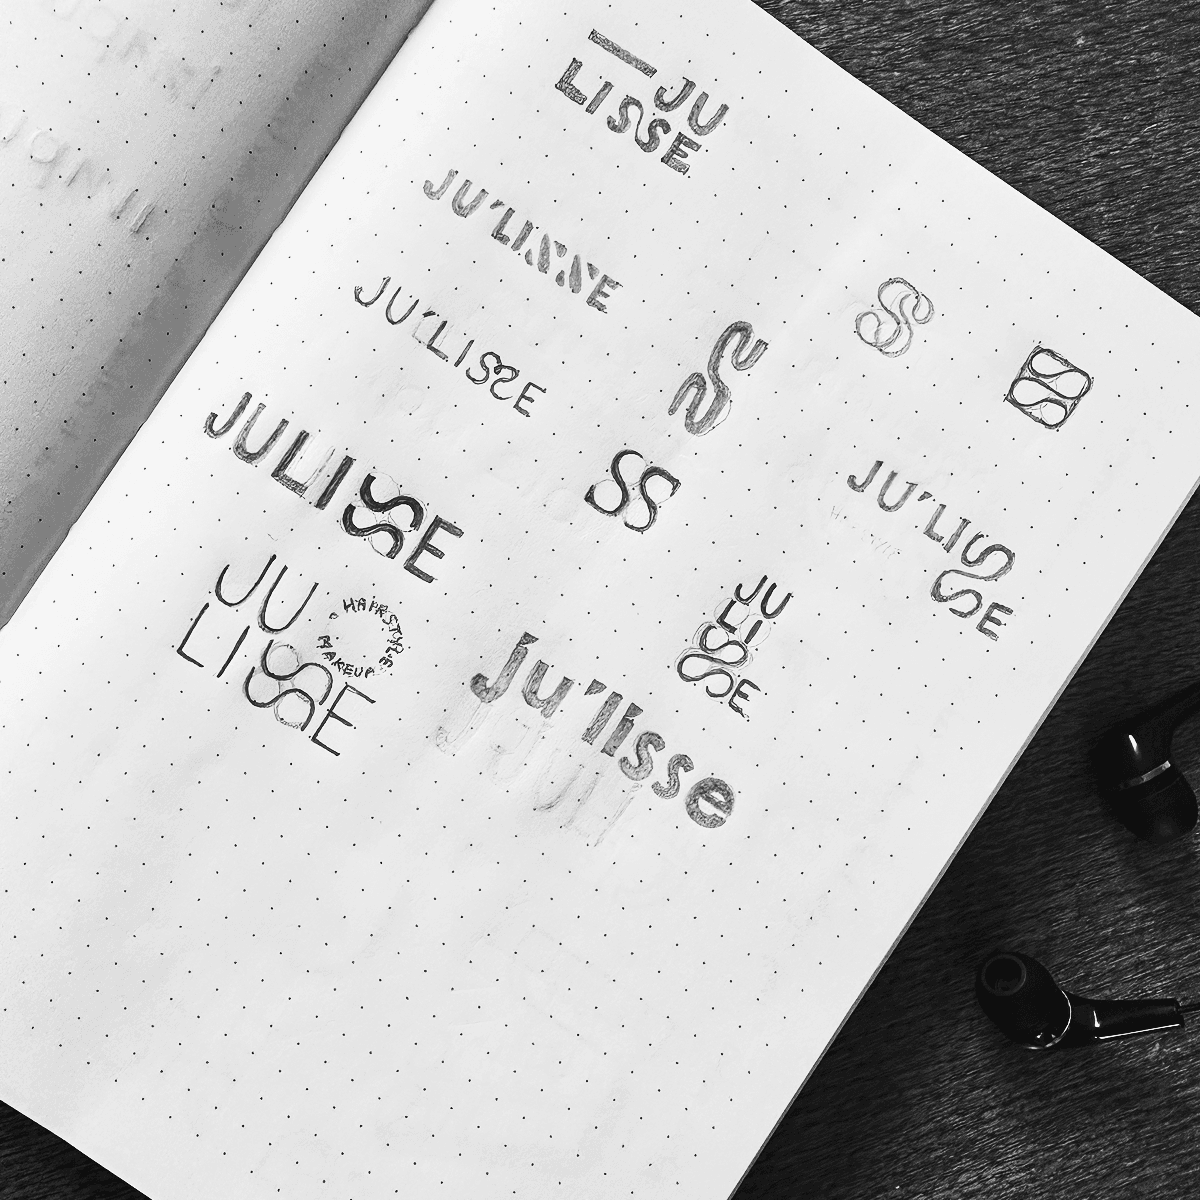 JU
LISSE
JU'LISSE
JU'LISSE
JULISSE
JU
LISSE
HAIRSTYLE
MAKEUP
Ju'lisse
SS
SS
SS
SS
JU'LISSE
JU
LI
SSE